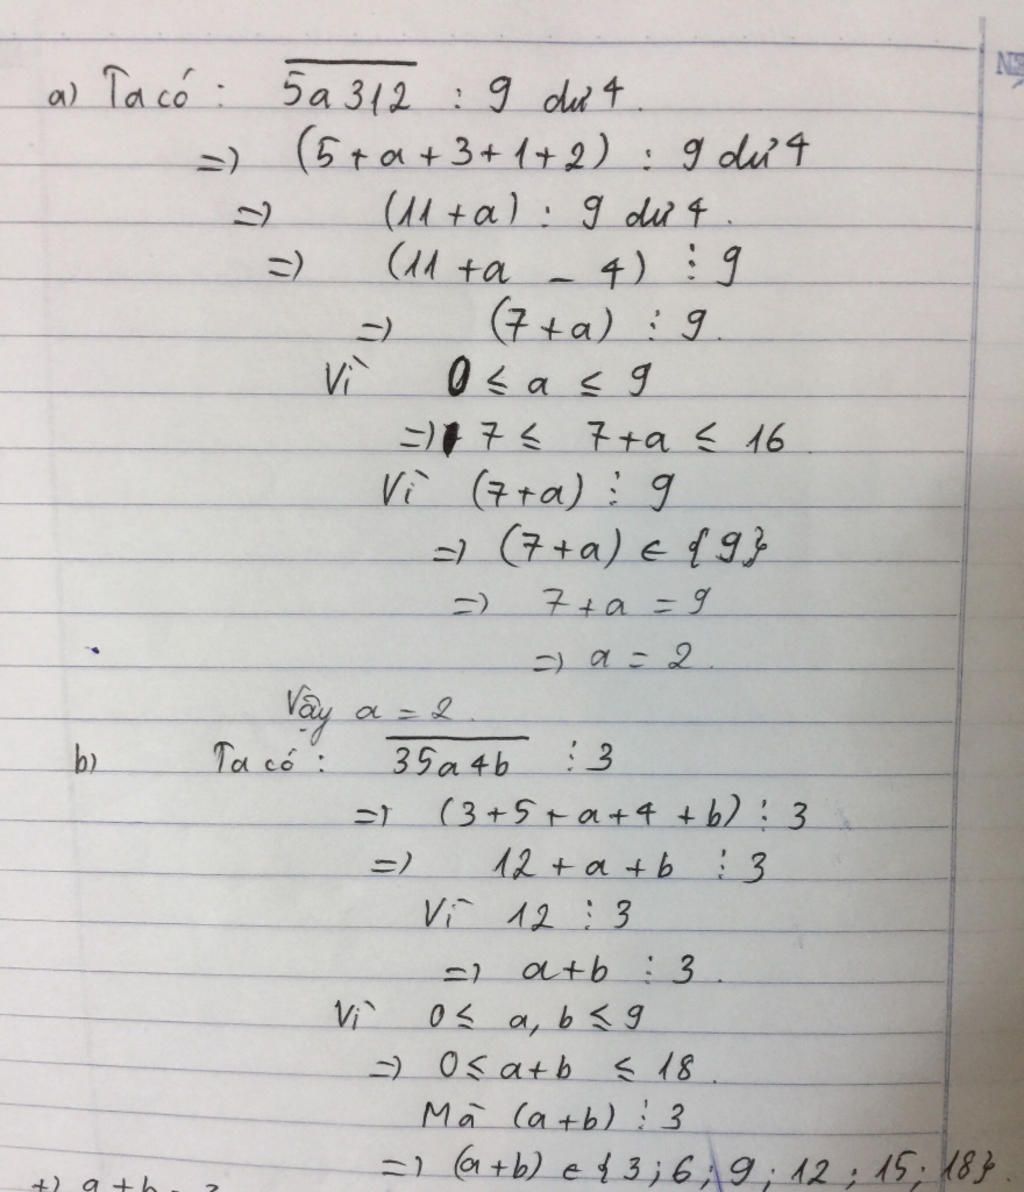 a) Ta có : 5a312 : 9 dư 4.
=> (5 + a + 3 + 1 + 2) : 9 dư 4
=> (11 + a) : 9 dư 4.
=> (11 + a - 4) ⋮ 9
=> (7 + a) ⋮ 9.
Vì 0 ≤ a ≤ 9
=> 7 ≤ 7 + a ≤ 16.
Vì (7 + a) ⋮ 9
=> (7 + a) ∈ {9}
=> 7 + a = 9
=> a = 2.
Vậy a = 2.
b) Ta có : 35a4b ⋮ 3
=> (3 + 5 + a + 4 + b) ⋮ 3
=> 12 + a + b ⋮ 3
Vì 12 ⋮ 3
=> a + b ⋮ 3.
Vì 0 ≤ a, b ≤ 9
=> 0 ≤ a + b ≤ 18.
Mà (a + b) ⋮ 3
=> (a + b) ∈ {3 ; 6 ; 9 ; 12 ; 15 ; 18}.
+) a + b